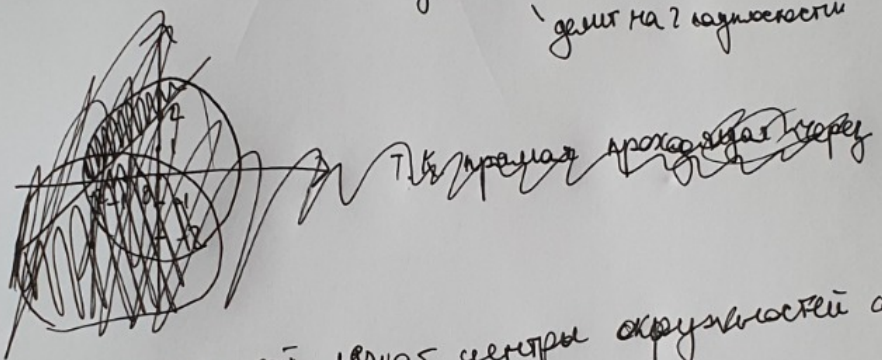 делит на 2 полуплоскости
Т.К. прямая проходящая через
центры окружностей